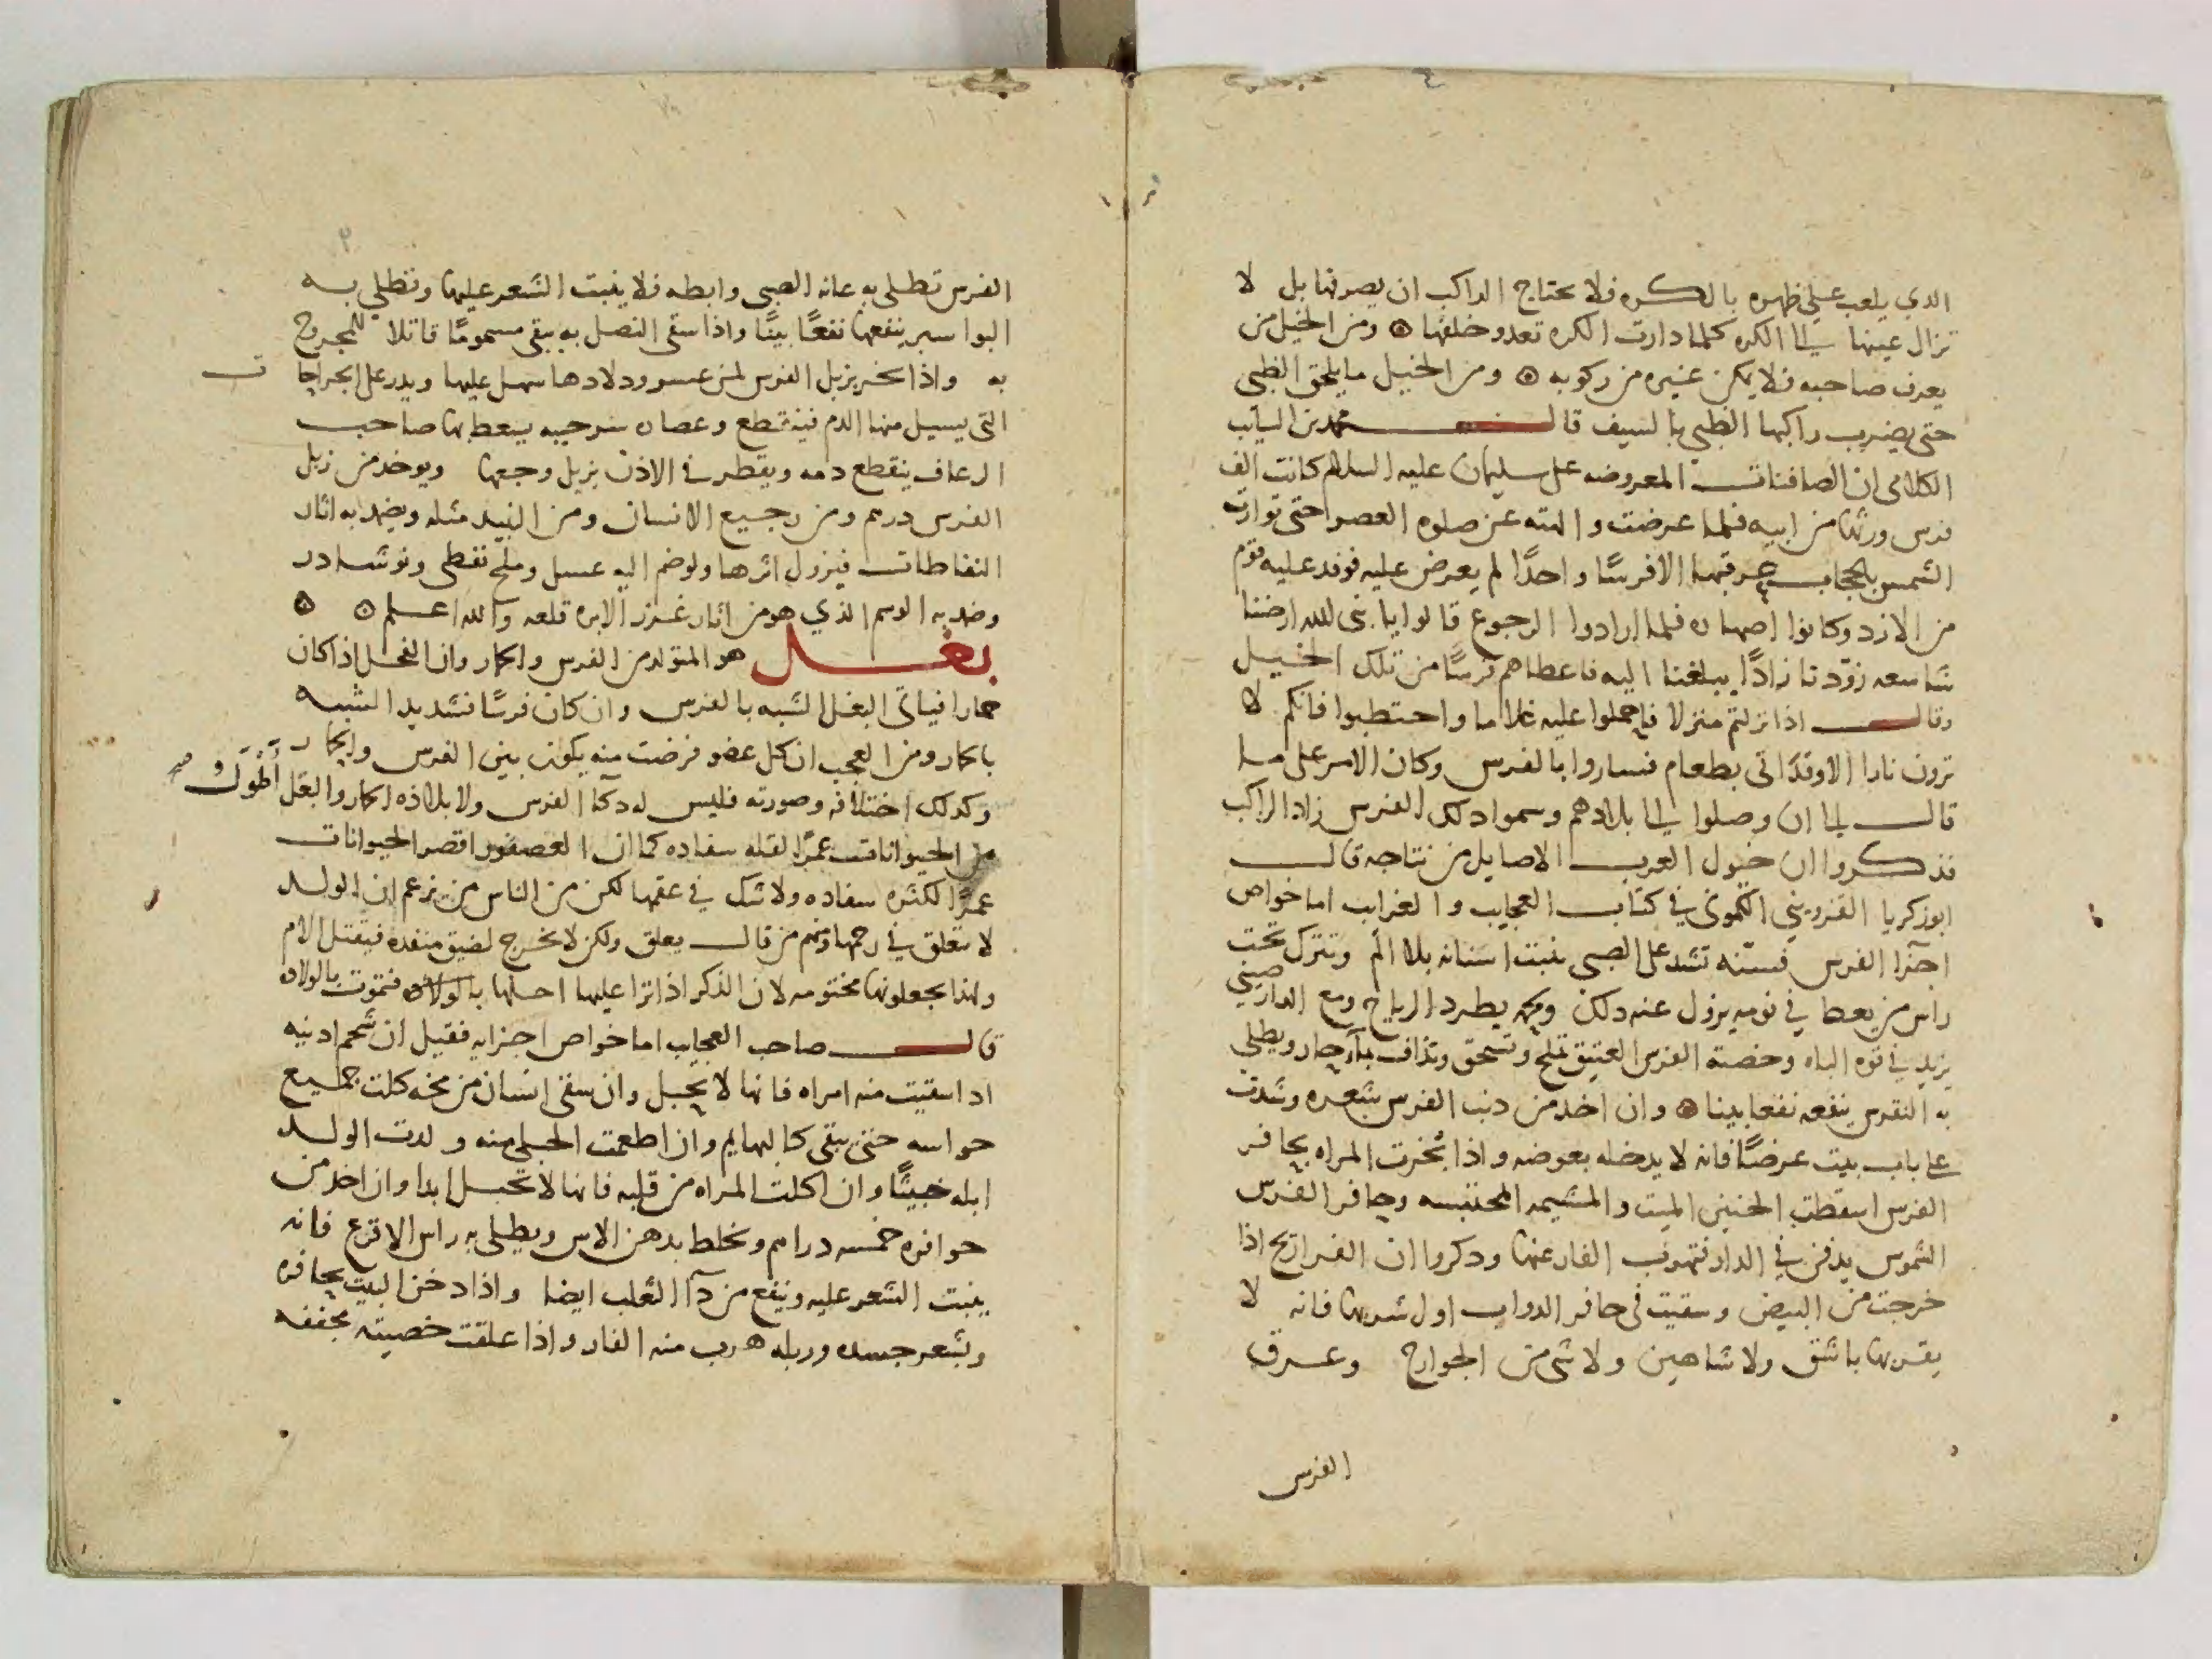 الذي يلعب على ظهره بالكره فلا يحتاج الراكب ان يصرفها بل لا
تزال عينها الى الكره كلما دارت الكره تعدو خلفها ومن الخيل من
يعرف صاحبه فلا يمكن غيره من ركوبه ومن الخيل ما يلحق الظبي
حتى يضرب راكبها الظبي بالسيف قال محمد بن السايب
الكلامى ان الصافنات المعروضه على سليمان عليه السلام كانت الف
فرس ورثها من ابيه فلما عرضت والهته عن صلوه العصر حتى توارت
الشمس بالحجاب عرقبها الا فرسًا واحدًا لم يعرض عليه فوفد عليه قوم
من الازد وكانوا اصهاره فلما ارادوا الرجوع قالوا يا نبى الله ارضنا
شاسعه زوّدنا زادًا يبلغنا اليه فاعطاهم فرسًا من تلك الخيل
وقال اذا نزلتم منزلا فاحملوا عليه غلاما واحتطبوا فانكم لا
ترون نارا الا وقد اتى بطعام فساروا بالفرس وكان الامر على ما
قال الى ان وصلوا الى بلادهم وسموا دلك الفرس زاد الراكب
فذكروا ان خيول العرب الاصايل من نتاجه قال
ابوزكريا القزويني الكموني في كتاب العجايب والغرايب اما خواص
اجزا الفرس فسنه تشد على الصبى نبتت اسنانه بلا الم وتترك تحت
راس من يعط في نومه يزول عنه دلك ولحمه يطرد الرياح ومع الدارصيني
يزيد في قوه الباه وخصية الفرس العتيق تملح وتسحق وتذاف بماء حار ويطلي
به النقرس ينفعه نفعا بينا وان اخد من دنب الفرس بشعره وشدت
على باب بيت عرضًا فانه لا يدخله بعوضه واذا بخرت المراه بحافر
الفرس اسقطت الجنين الميت والمشيمه المحتبسه وحافر الفرس
الشموس يدفن في الدار فتهرب الفار عنها ودكروا ان الفراريج اذا
خرجت من البيض وسقيت فى حافر الدواب اول شربها فانه لا
يقربها باشق ولا شاهين ولا شى من الجوارح وعرق
الفرس
الفرس تطلى به عانه الصبى وابطه فلا ينبت الشعر عليها وتطلي به
البواسير ينفعها نفعًا بينًا واذا سقى النصل به يبقى مسمومًا قاتلا للمجروح
به واذا بخر بزبل الفرس لمن عسر ولادها سهل عليها ويدر على الجراحات
التى يسيل منها الدم فينقطع وعصاره سرجينه يسعط بها صاحب
الرعاف ينقطع دمه ويقطر في الاذن يزيل وجعها ويوخد من زبل
الفرس درهم ومن رجيع الانسان ومن النبيد مثله ويضمد به اثار
النفاطات فيزول اثرها ولو ضم اليه عسل وملح نفطى ونوشادر
وضمد به الوسم الذي هو من اثار غرز الابره قلعه والله اعلم
بغل هو المتولد من الفرس والحمار وان الفحل اذا كان
حمارا فياتى البغل الشبه بالفرس وان كان فرسًا فشديد الشبه
بالحمار ومن العجب ان كل عضو فرضت منه يكون بين الفرس والحمار
وكدلك اختلافه وصورته فليس له دكا الفرس ولا بلاذه الحمار والبغل اطول
من الحيوانات عمرًا لقله سفاده كما ان العصفور اقصر الحيوانات
عمرًا لكثره سفاده ولا شك في عقمها لكن من الناس من يزعم ان الولد
لا يتعلق في رحمها ومنهم من قال يعلق ولكن لا يخرج لضيق منفده فيقتل الام
ولهذا يجعلونها مختومه لان الذكر اذا نزا عليها احبلها فتموت بالولاده
قال صاحب العجايب اما خواص اجزايه فقيل ان شحم ادنيه
ادا سقيت منه امراه فانها لا تحبل وان سقى انسان من مخه كلت جميع
حواسه حتى يبقى كالبهايم وان اطعمت الحبلى منه ولدت الولد
ابله خبيثًا وان اكلت المراه من قلبه فانها لا تحبل ابدا وان اخد من
حوافره خمسه دراهم وتخلط بدهن الاس ويطلى به راس الاقرع فانه
ينبت الشعر عليه وينفع من دآ الثعلب ايضا واذا دخن البيت بحافره
وبشعر جسده وزبله هرب منه الفار واذا علقت خصيته مجففه